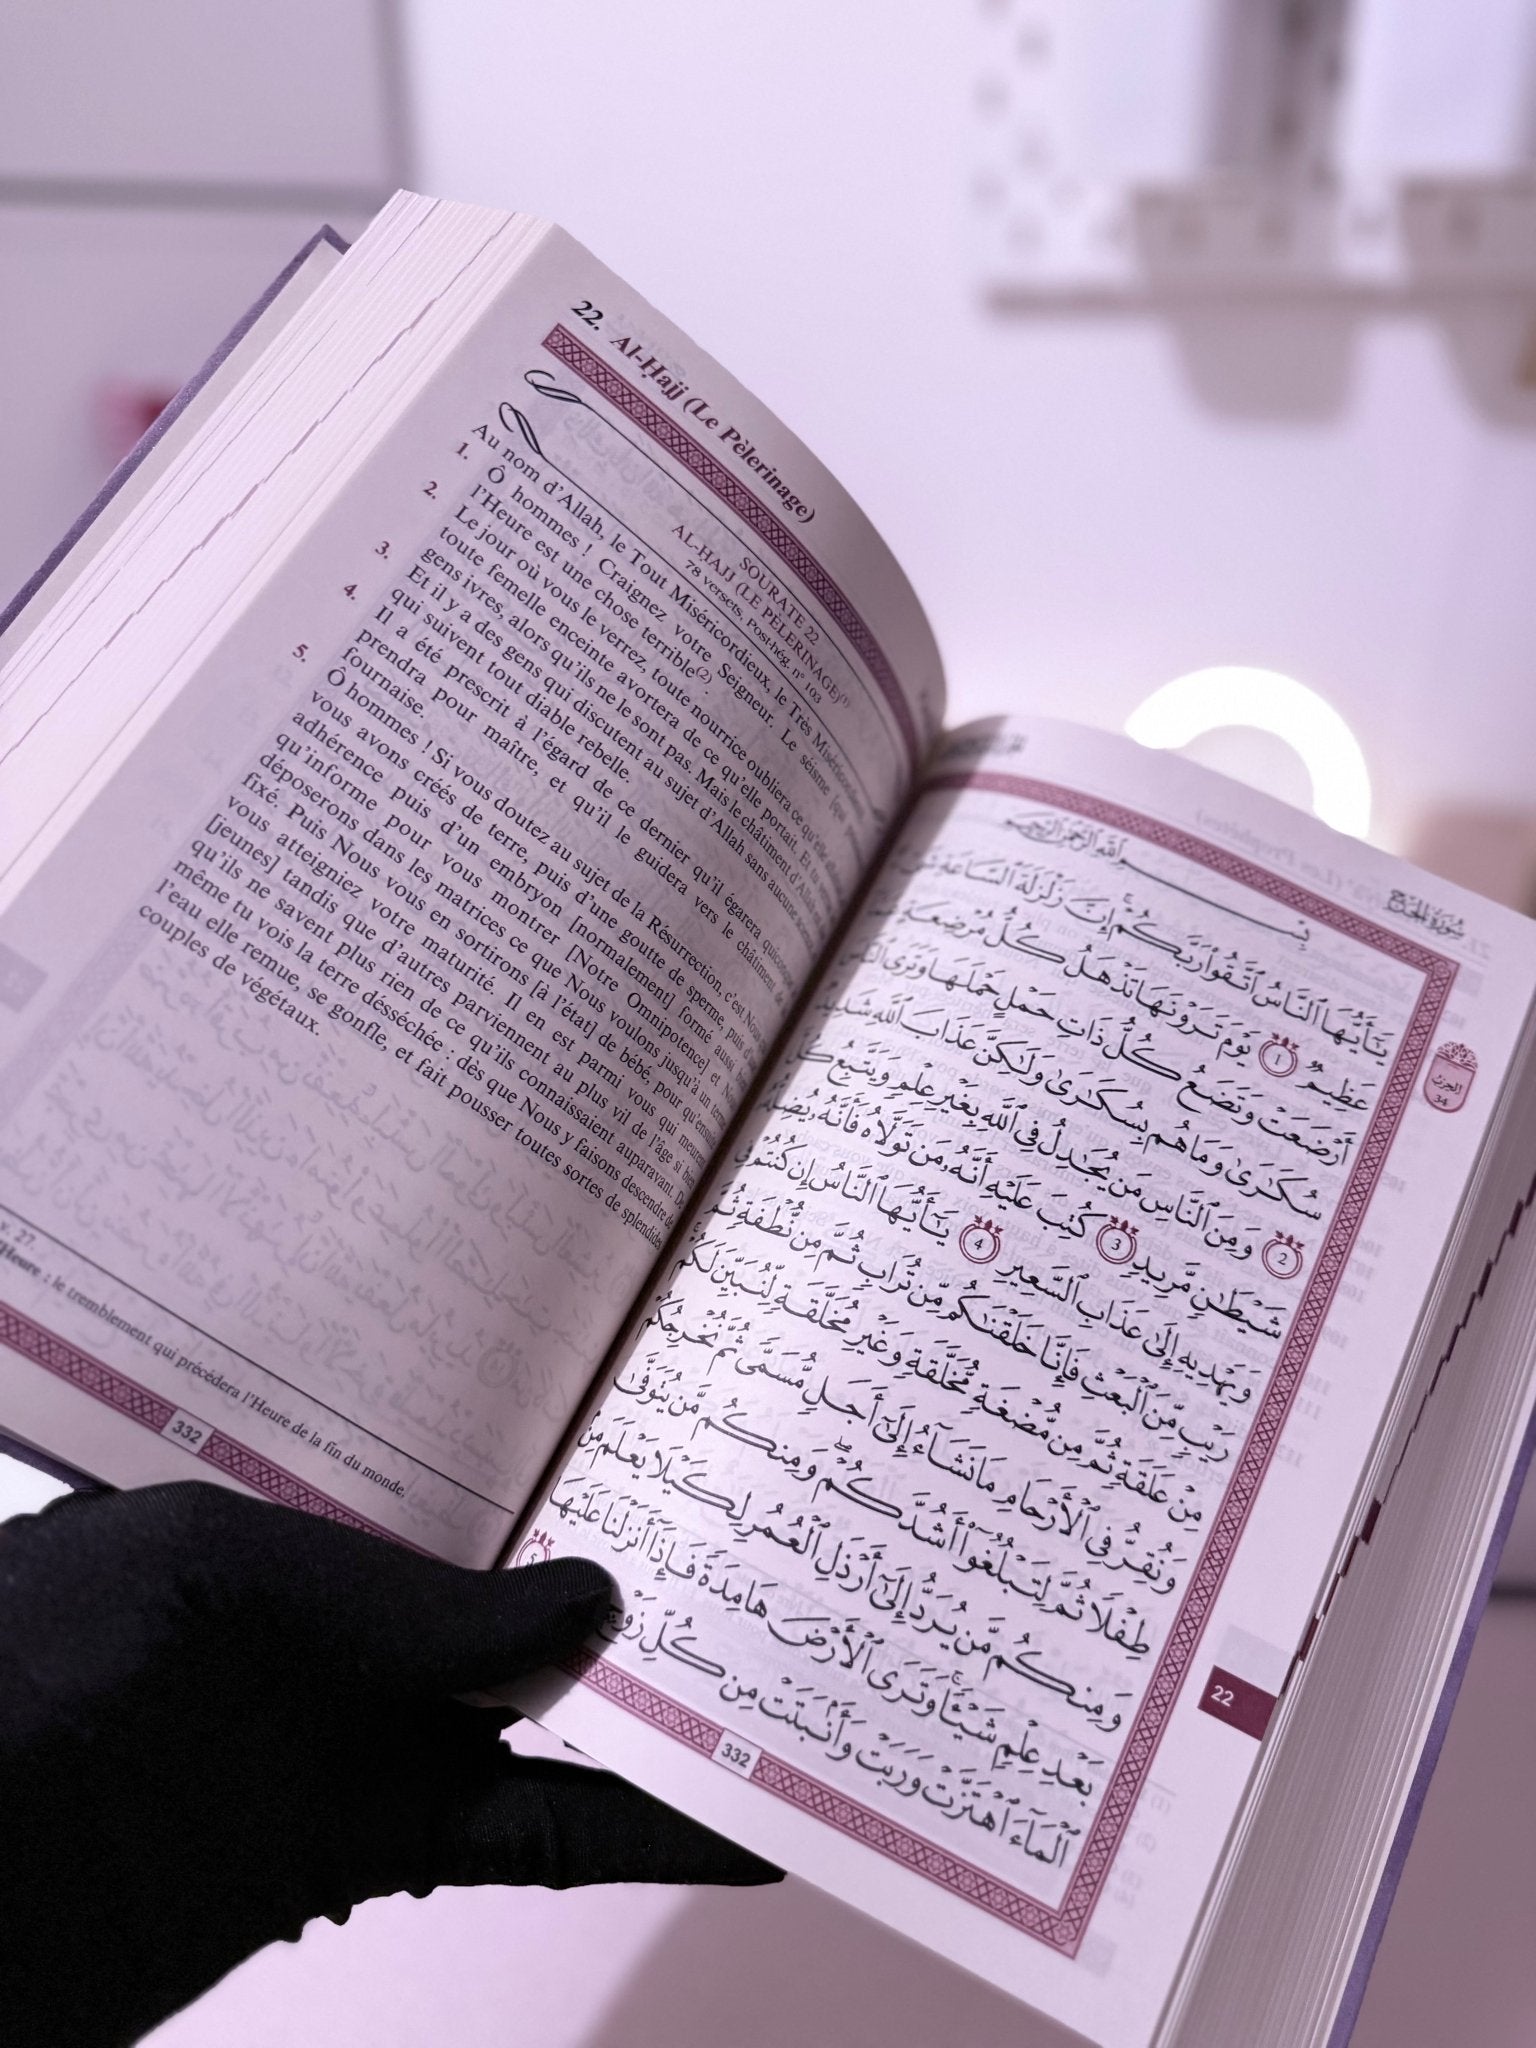 22. Al-Ḥajj (Le Pèlerinage)
SOURATE 22
AL-ḤAJJ (LE PÈLERINAGE)(1)
78 versets, Post-hég. n° 103
Au nom d'Allah, le Tout Miséricordieux, le Très Miséricordieux
1. Ô hommes ! Craignez votre Seigneur. Le séisme [qui
l'Heure est une chose terrible(2).
2. Le jour où vous le verrez, toute nourrice oubliera ce qu'elle
toute femelle enceinte avortera de ce qu'elle portait. Et tu
gens ivres, alors qu'ils ne le sont pas. Mais le châtiment d'Allah
3. Et il y a des gens qui discutent au sujet d'Allah sans aucune
qui suivent tout diable rebelle.
4. Il a été prescrit à l'égard de ce dernier qu'il égarera quiconque
prendra pour maître, et qu'il le guidera vers le châtiment de
fournaise.
5. Ô hommes ! Si vous doutez au sujet de la Résurrection, c'est Nous
vous avons créés de terre, puis d'une goutte de sperme, puis
adhérence puis d'un embryon [normalement] formé aussi
qu'informe pour vous montrer [Notre Omnipotence] et Nous
déposerons dans les matrices ce que Nous voulons jusqu'à un terme
fixé. Puis Nous vous en sortirons [à l'état] de bébé, pour qu'ensuite
vous atteigniez votre maturité. Il en est parmi vous qui meurent
[jeunes] tandis que d'autres parviennent au plus vil de l'âge si bien
qu'ils ne savent plus rien de ce qu'ils connaissaient auparavant. De
même tu vois la terre désséchée : dès que Nous y faisons descendre de
l'eau elle remue, se gonfle, et fait pousser toutes sortes de splendides
couples de végétaux.
v. 27.
Heure : le tremblement qui précédera l'Heure de la fin du monde,
332
سُورَةُ الحَجِّ
الجزء
34
بِسْمِ اللَّهِ الرَّحْمَٰنِ الرَّحِيمِ
يَٰٓأَيُّهَا ٱلنَّاسُ ٱتَّقُوا۟ رَبَّكُمْ ۚ إِنَّ زَلْزَلَةَ ٱلسَّاعَةِ
عَظِيمٌ 1 يَوْمَ تَرَوْنَهَا تَذْهَلُ كُلُّ مُرْضِعَةٍ
أَرْضَعَتْ وَتَضَعُ كُلُّ ذَاتِ حَمْلٍ حَمْلَهَا وَتَرَى ٱلنَّاسَ
سُكَٰرَىٰ وَمَا هُم بِسُكَٰرَىٰ وَلَٰكِنَّ عَذَابَ ٱللَّهِ شَدِيدٌ
2 وَمِنَ ٱلنَّاسِ مَن يُجَٰدِلُ فِى ٱللَّهِ بِغَيْرِ عِلْمٍ وَيَتَّبِعُ كُلَّ
شَيْطَٰنٍ مَّرِيدٍ 3 كُتِبَ عَلَيْهِ أَنَّهُۥ مَن تَوَلَّاهُ فَأَنَّهُۥ يُضِلُّهُۥ
وَيَهْدِيهِ إِلَىٰ عَذَابِ ٱلسَّعِيرِ 4 يَٰٓأَيُّهَا ٱلنَّاسُ إِن كُنتُمْ فِى
رَيْبٍ مِّنَ ٱلْبَعْثِ فَإِنَّا خَلَقْنَٰكُم مِّن تُرَابٍ ثُمَّ مِن نُّطْفَةٍ ثُمَّ
مِنْ عَلَقَةٍ ثُمَّ مِن مُّضْغَةٍ مُّخَلَّقَةٍ وَغَيْرِ مُخَلَّقَةٍ لِّنُبَيِّنَ لَكُمْ ۚ
وَنُقِرُّ فِى ٱلْأَرْحَامِ مَا نَشَآءُ إِلَىٰٓ أَجَلٍ مُّسَمًّى ثُمَّ نُخْرِجُكُمْ
طِفْلًا ثُمَّ لِتَبْلُغُوٓا۟ أَشُدَّكُمْ ۖ وَمِنكُم مَّن يُتَوَفَّىٰ
وَمِنكُم مَّن يُرَدُّ إِلَىٰٓ أَرْذَلِ ٱلْعُمُرِ لِكَيْلَا يَعْلَمَ مِنۢ
بَعْدِ عِلْمٍ شَيْـًٔا ۚ وَتَرَى ٱلْأَرْضَ هَامِدَةً فَإِذَآ أَنزَلْنَا عَلَيْهَا
ٱلْمَآءَ ٱهْتَزَّتْ وَرَبَتْ وَأَنۢبَتَتْ مِن كُلِّ زَوْجٍۭ
5
22
332